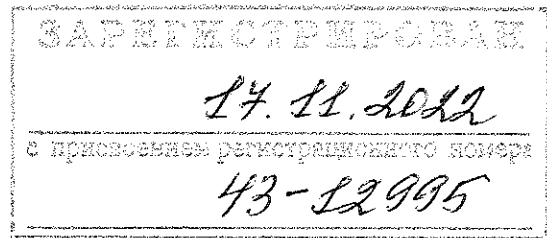 ЗАРЕГИСТРИРОВАН
17.11.2022
с присвоением регистрационного номера
43-12995